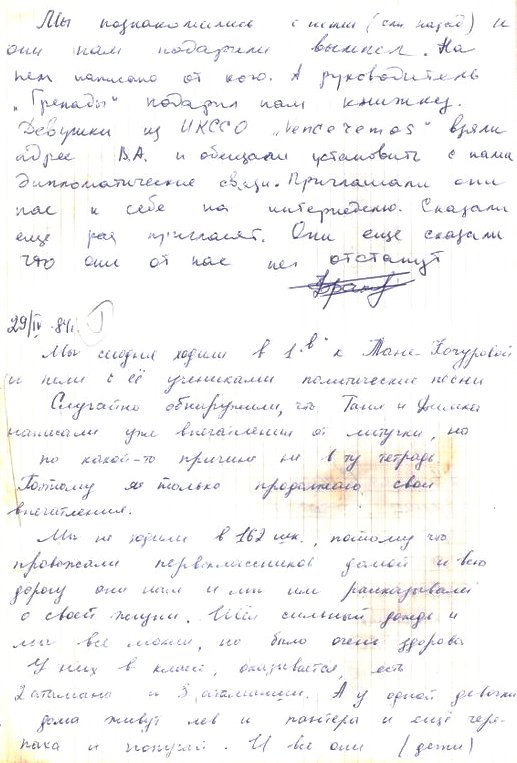 Мы познакомились с ними (сли назад) и
они нам подарили вымпел. На
нём написано от кого. А руководитель
„Гренады" подарил нам книжку.
Девушки из ИКССО „Venceremos" взяли
адрес В.А. и обещали установить с нами
дипломатические связи. Приглашали они
нас к себе на интернеделю. Сказали
ещё раз пригласят. Они ещё сказали
что они от нас не отстанут
29/IV 84г. 1
Мы сегодня ходили в 1"в" к Тане Кочуровой
и пели с её учениками политические песни
Случайно обнаружили, что Таня и Димка
написали уже впечатления от летучки, но
по какой-то причине не в ту тетрадь
Поэтому я только продолжаю свои
впечатления.
Мы не ходили в 162 шк., потому что
провожали первоклассников домой и всю
дорогу они нам и мы им рассказывали
о своей жизни. Шёл сильный дождь и
мы все мокли, но было очень здорово
У них в классе, оказывается, есть
2 атамана и 3 атаманши. А у одной девочки
дома живут лев и пантера и ещё чере-
паха и попугай. И все они (дети)